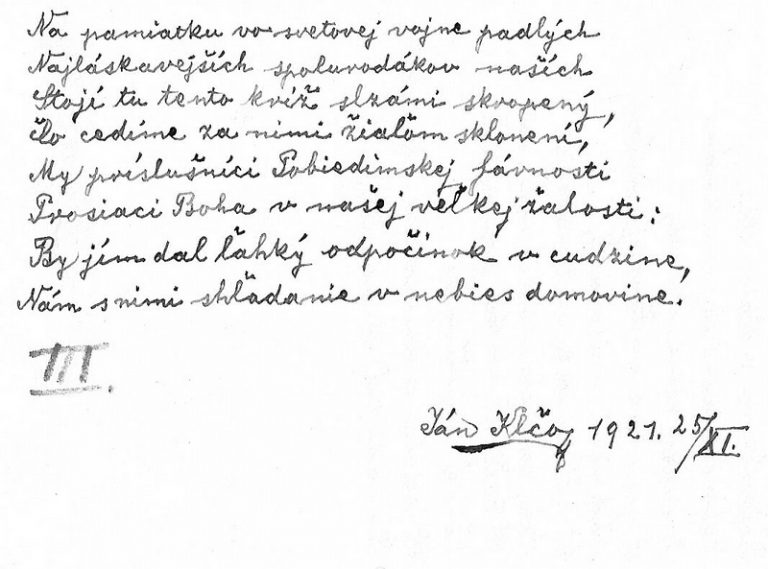 Na pamiatku vo svetovej vojne padlých
Najláskavejších spolurodákov naších
Stojí tu tento kríž slzámi skropený,
Čo cedíme za nimi žialom sklonení,
My príslušníci Pobiedimskej fárnosti
Prosiaci Boha v našej veľkej žalosti:
By jím dal ľahký odpočinok v cudzine,
Nám s nimi shľadanie v nebies domovine.
III.
Ján Klčo 1921. 25/XI.